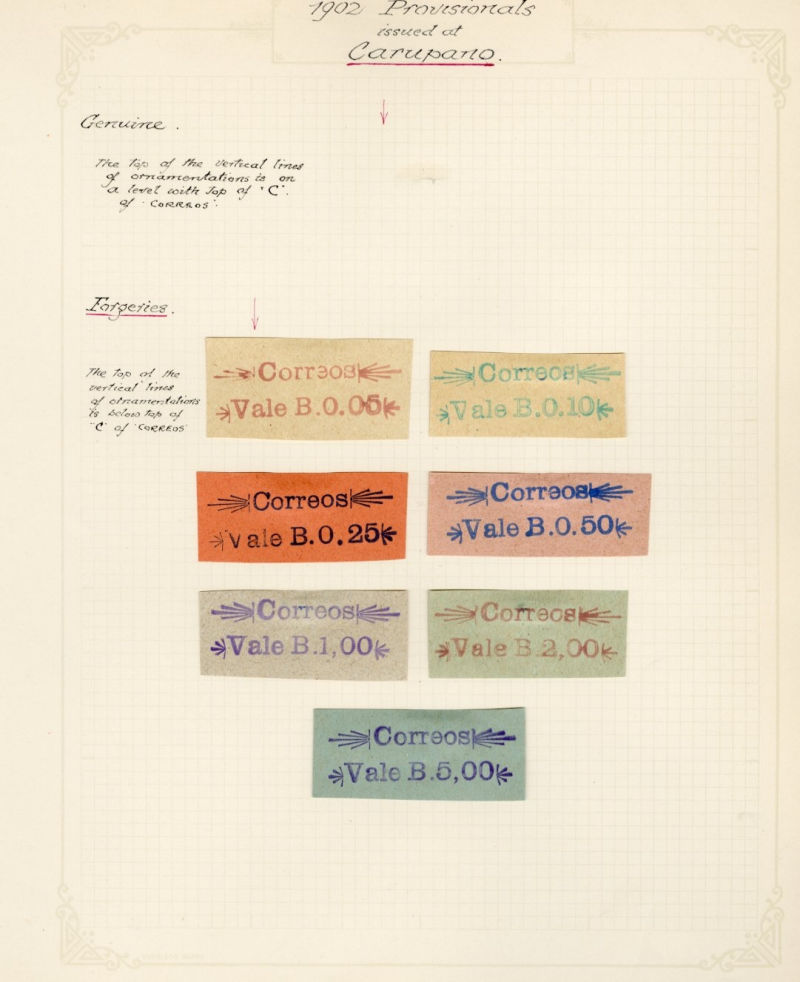 1902 Provisionals
issued at
Carupano.
Genuine.
The top of the vertical lines
of ornamentations is on
a level with top of "C".
of "CORREOS".
Forgeries.
The top of the
vertical lines
of ornamentations
is below top of
"C" of "CORREOS"
Correos
Vale B.0.05
Correos
Vale B.0.10
Correos
Vale B.0.25
Correos
Vale B.0.50
Correos
Vale B.1,00
Correos
Vale B.2,00
Correos
Vale B.5,00